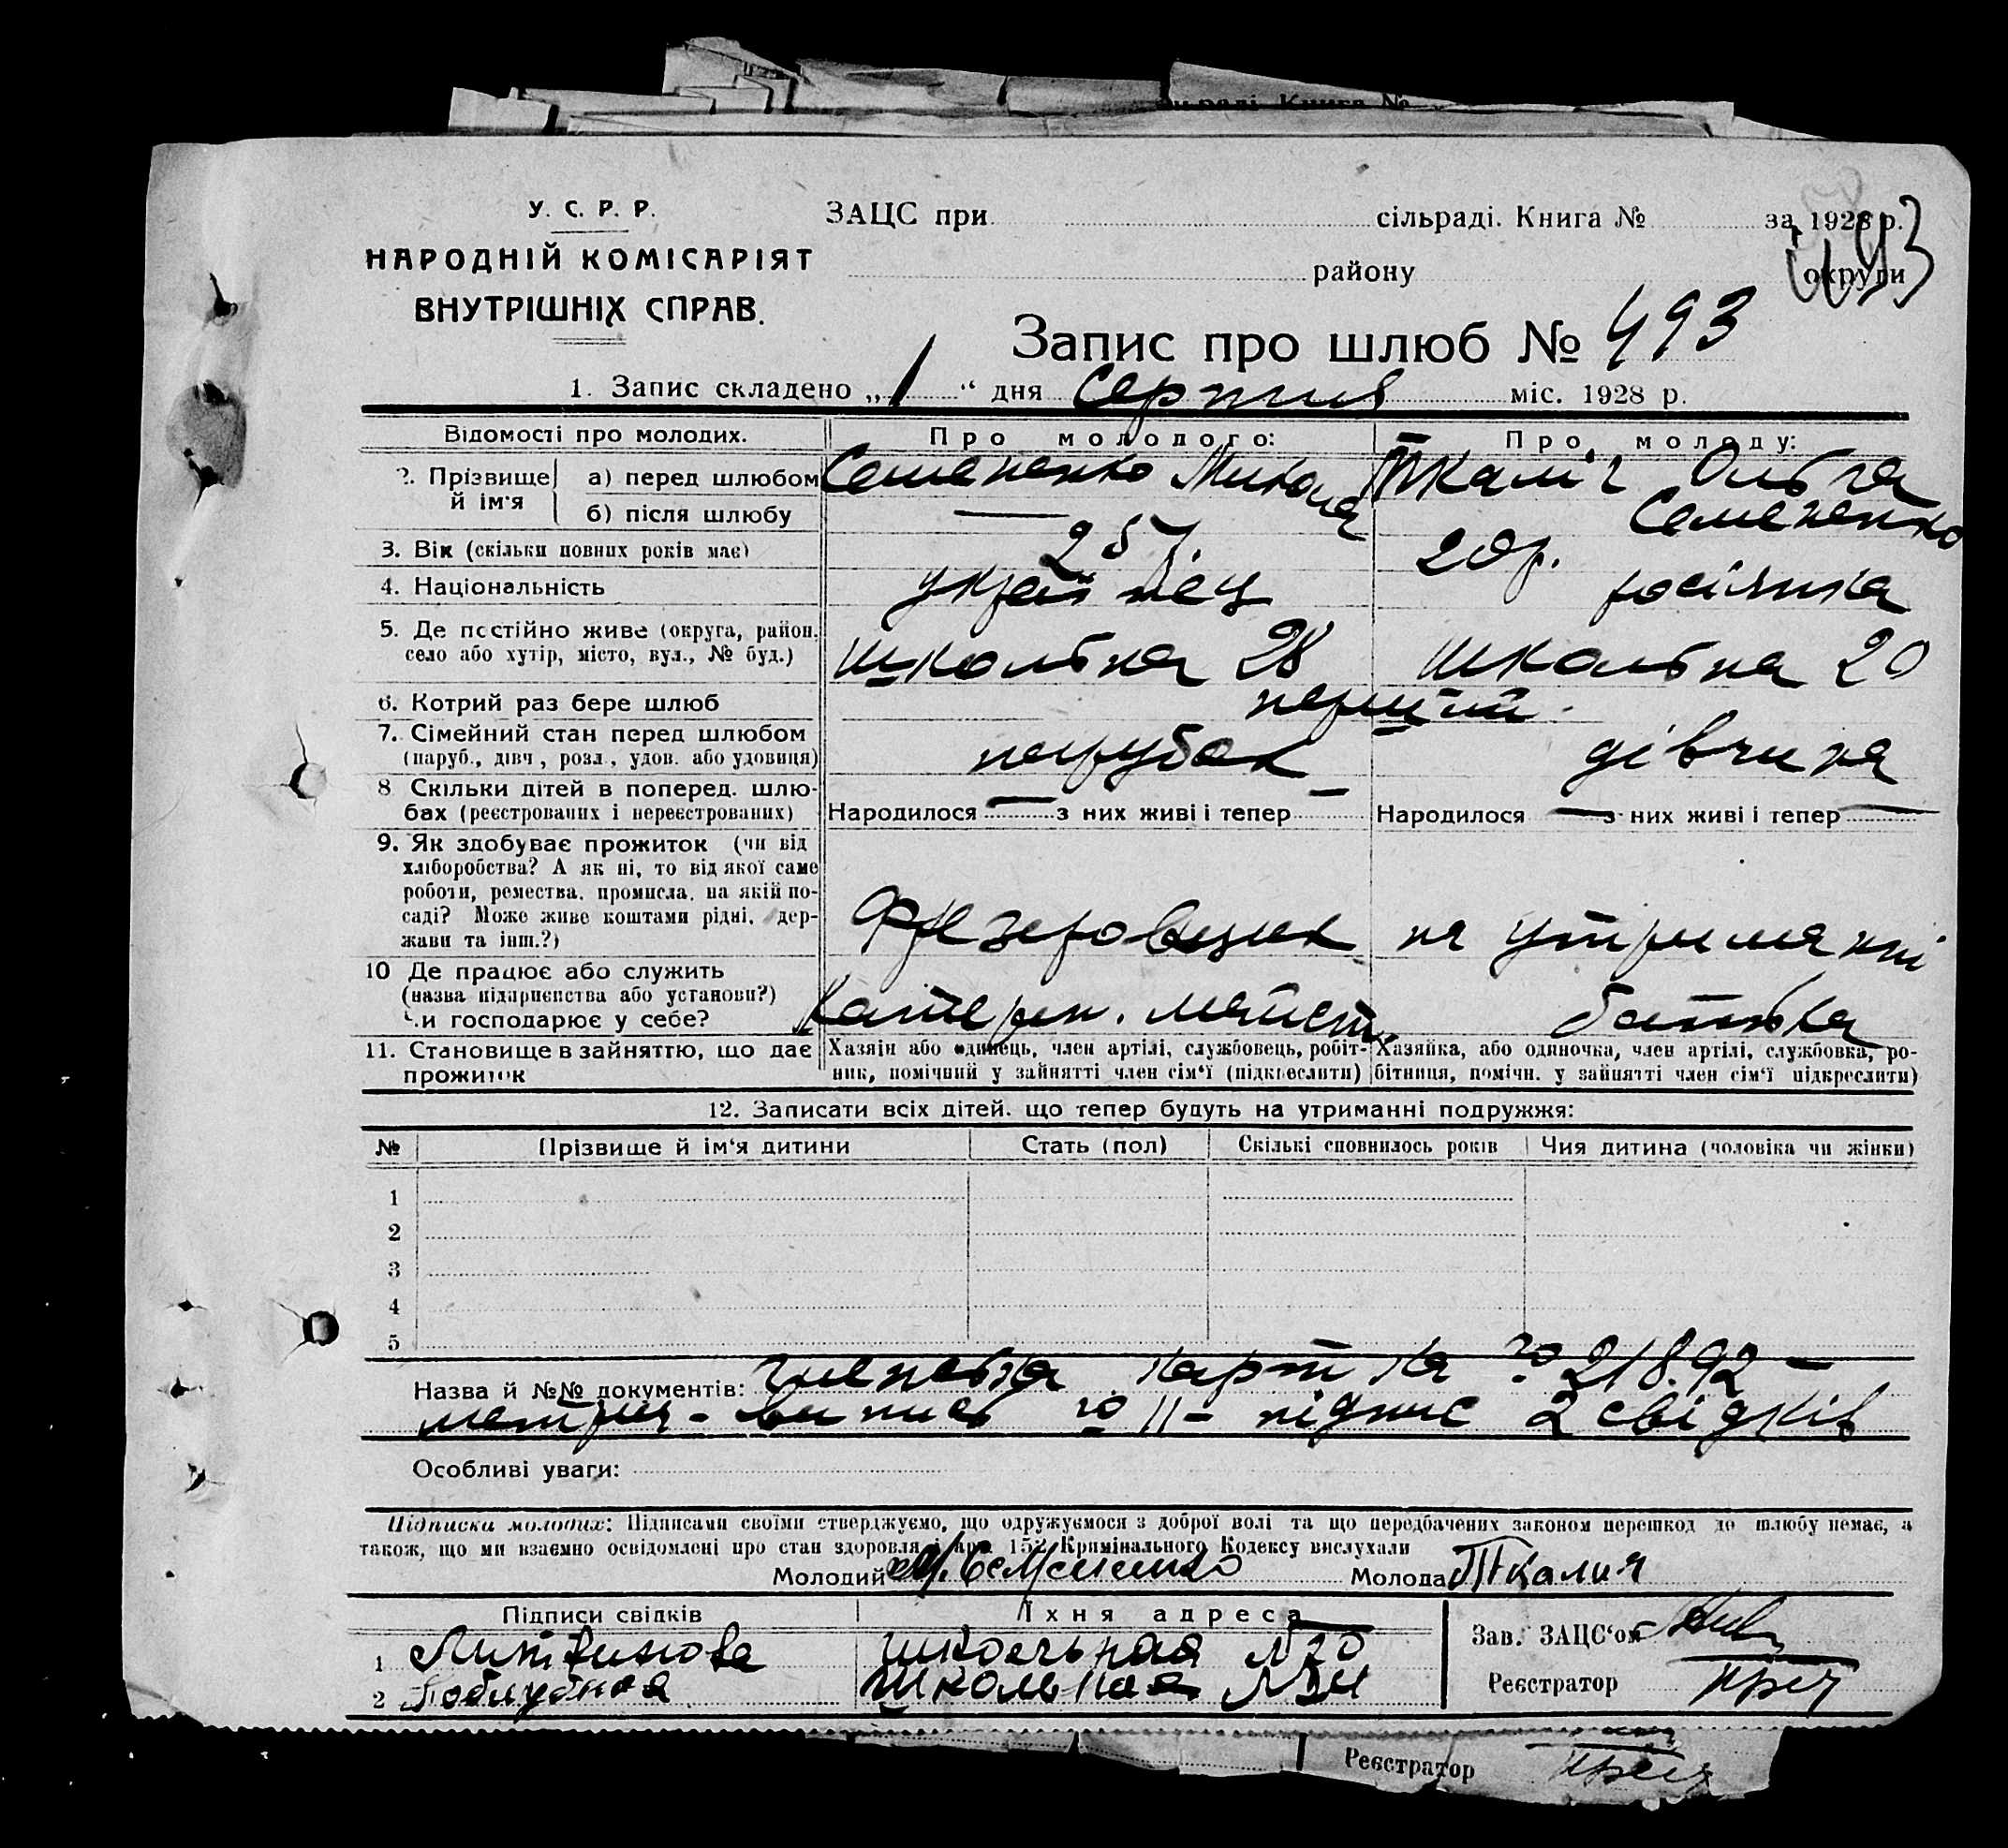 У. С. Р. Р.
НАРОДНІЙ КОМІСАРІЯТ
ВНУТРІШНІХ СПРАВ.
ЗАЦС при сільраді. Книга № за 1928 р.
району округи
493
Запис про шлюб № 493
1. Запис складено „1“ дня Серпня міс. 1928 р.
Відомості про молодих. Про молодого: Про молоду:
2. Прізвище й ім'я а) перед шлюбом Семененко Микола Ольга
б) після шлюбу — Семененко
3. Вік (скільки повних років має) 25 20 р.
4. Національність українець росіянка
5. Де постійно живе (округа, район, село або хутір, місто, вул., № буд.) Школьна 28 Школьна 20
6. Котрий раз бере шлюб перший
7. Сімейний стан перед шлюбом (паруб., дівч., розл., удов. або удовиця) парубок дівчина
8 Скільки дітей в поперед. шлюбах (реєстрованих і нереєстрованих) Народилося — з них живі і тепер — Народилося — з них живі і тепер —
9. Як здобуває прожиток (чи від хліборобства? А як ні, то від якої саме роботи, ремества, промисла, на якій посаді? Може живе коштами рідні, держави та інш.?) Фрезеровщик на утриманні
10 Де працює або служить (назва підприємства або установи?) Чи господарює у себе? Катерин. майст. батька
11. Становище в зайняттю, що дає прожиток
Хазяїн або одинець, член артілі, службовець, робітник, помічний у зайнятті член сім'ї (підкреслити)
Хазяйка, або одиночка, член артілі, службовка, робітниця, помічн. у зайнятті член сім'ї підкреслити)
12. Записати всіх дітей. що тепер будуть на утриманні подружжя:
№ Прізвище й ім'я дитини Стать (пол) Скількі сповнилось років Чия дитина (чоловіка чи жінки)
1
2
3
4
5
Назва й №№ документів: членська картка № 21892 —
метрич. випись № 11 - підпис 2 свідків
Особливі уваги:
Підписка молодих: Підписами своїми стверджуємо, що одружуємося з доброї волі та що передбачених законом перешкод до шлюбу немає, а
також, що ми взаємно освідомлені про стан здоровля і арт. 152 Кримінального Кодексу вислухали
Молодий М. Семененко Молода
Підписи свідків Їхня адреса Зав. ЗАЦС'ом
1 Литвинова Школьная №20
2 Школьная Реєстратор
Реєстратор